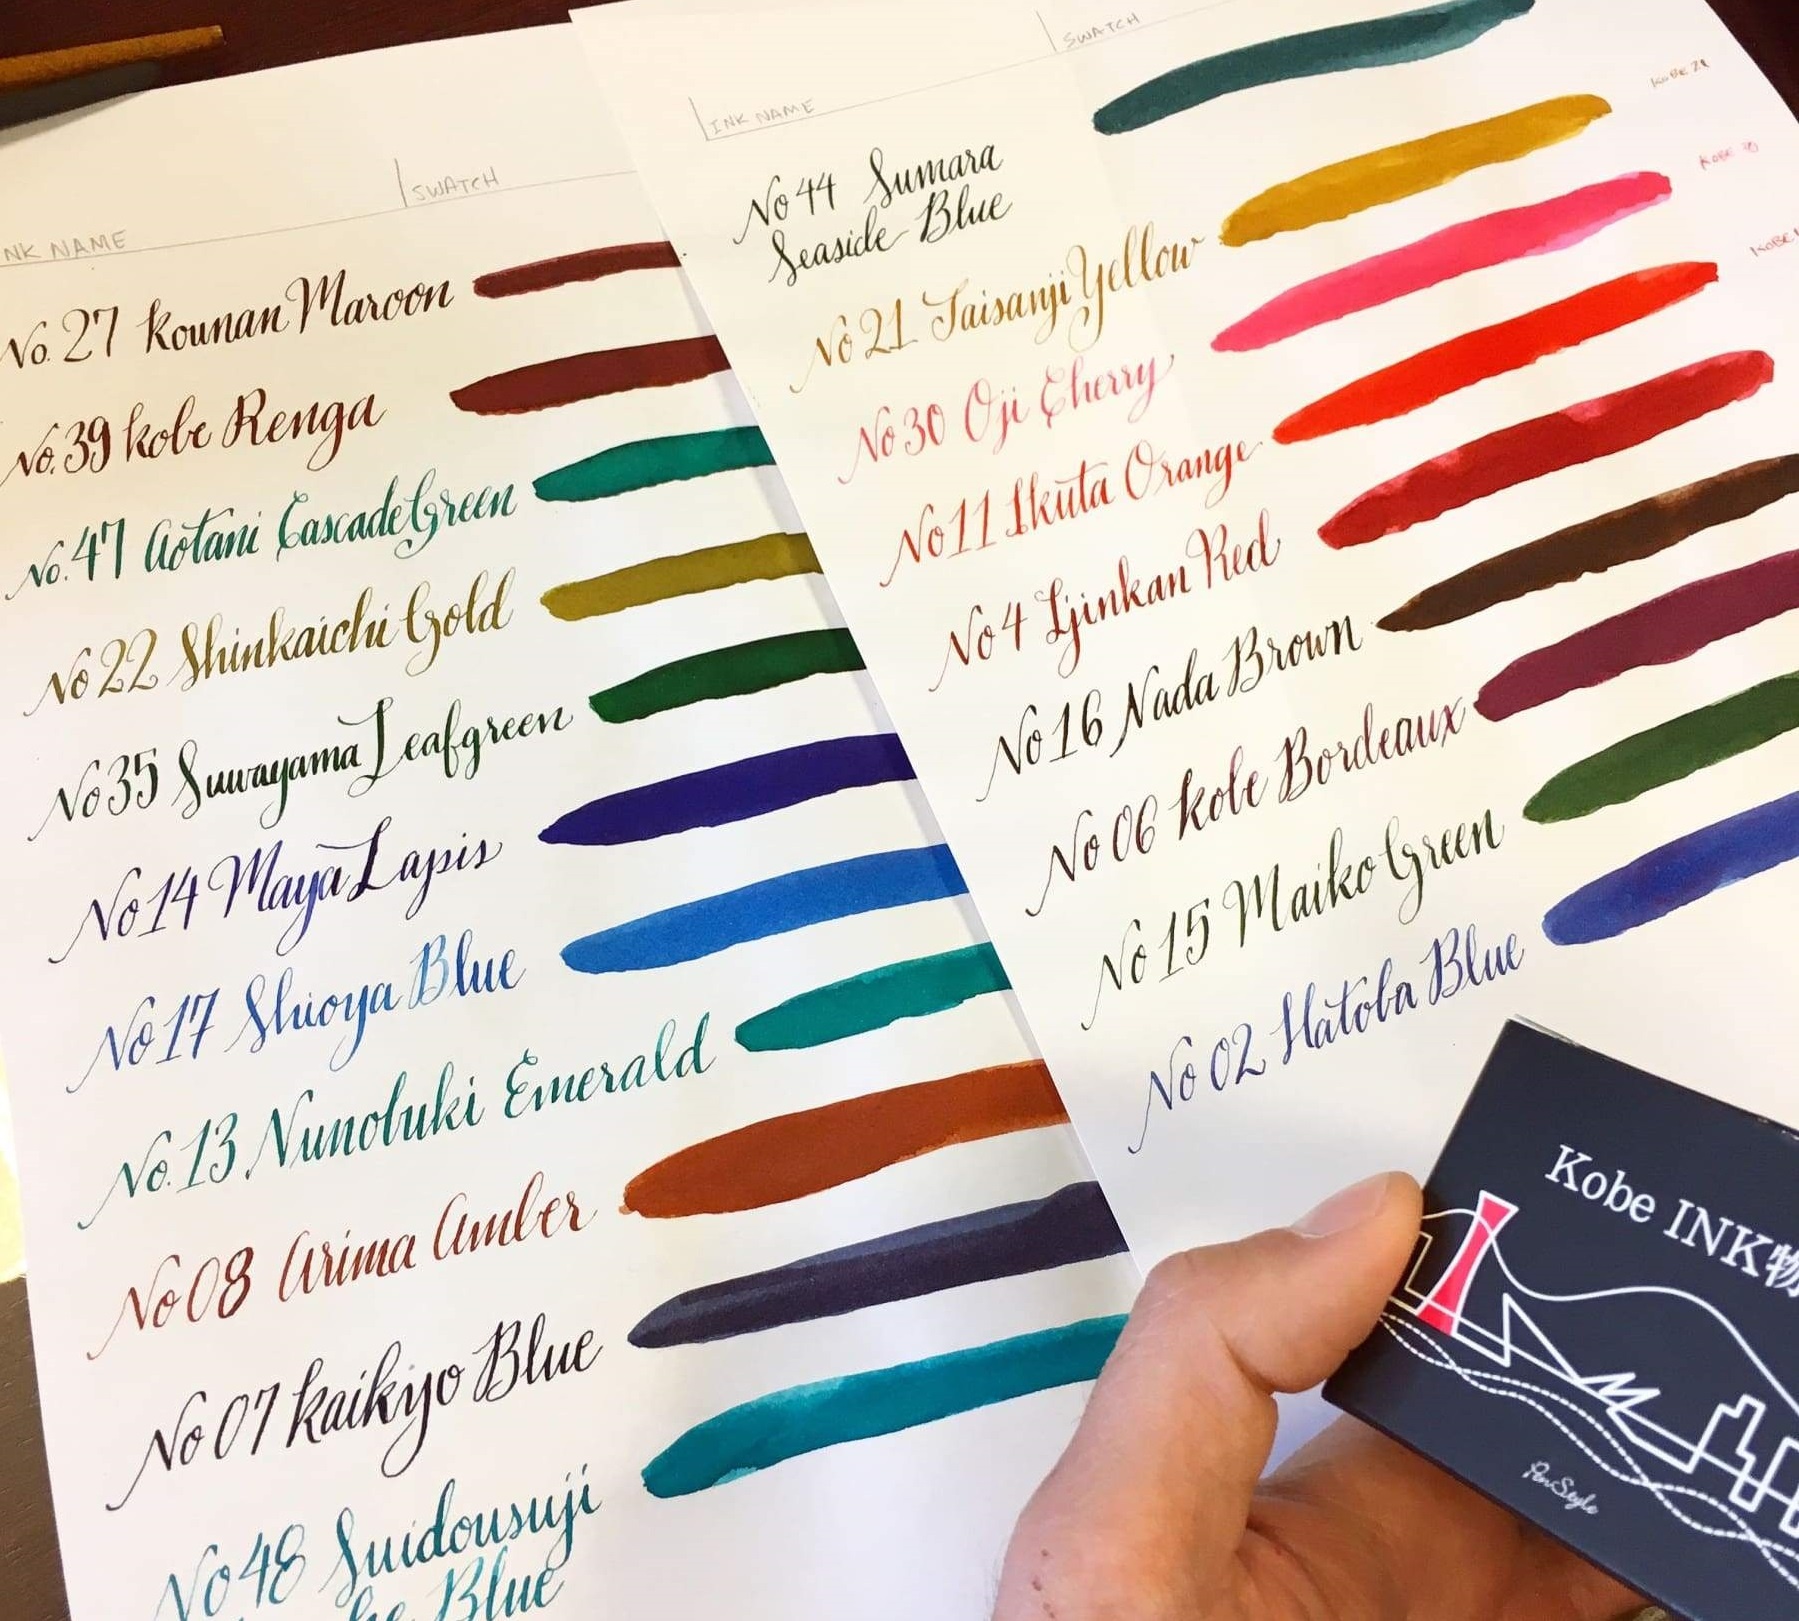 INK NAME
SWATCH
No. 27 Kounan Maroon
No. 39 Kobe Renga
No. 47 Aotani Cascade Green
No 22 Shinkaichi Gold
No 35 Suwayama Leafgreen
No 14 Maya Lapis
No 17 Shioya Blue
No. 13 Nunobuki Emerald
No 08 Arima Amber
No 07 Kaikyo Blue
No 48 Suidousuji
Blue
INK NAME
SWATCH
No 44 Sumara
Seaside Blue
No 21 Taisanji Yellow
KOBE 21
No 30 Oji Cherry
KOBE 30
No 11 Ikuta Orange
KOBE
No 4 Ijinkan Red
No 16 Nada Brown
No 06 Kobe Bordeaux
No 15 Maiko Green
No 02 Hatoba Blue
Kobe INK物
PenStyle